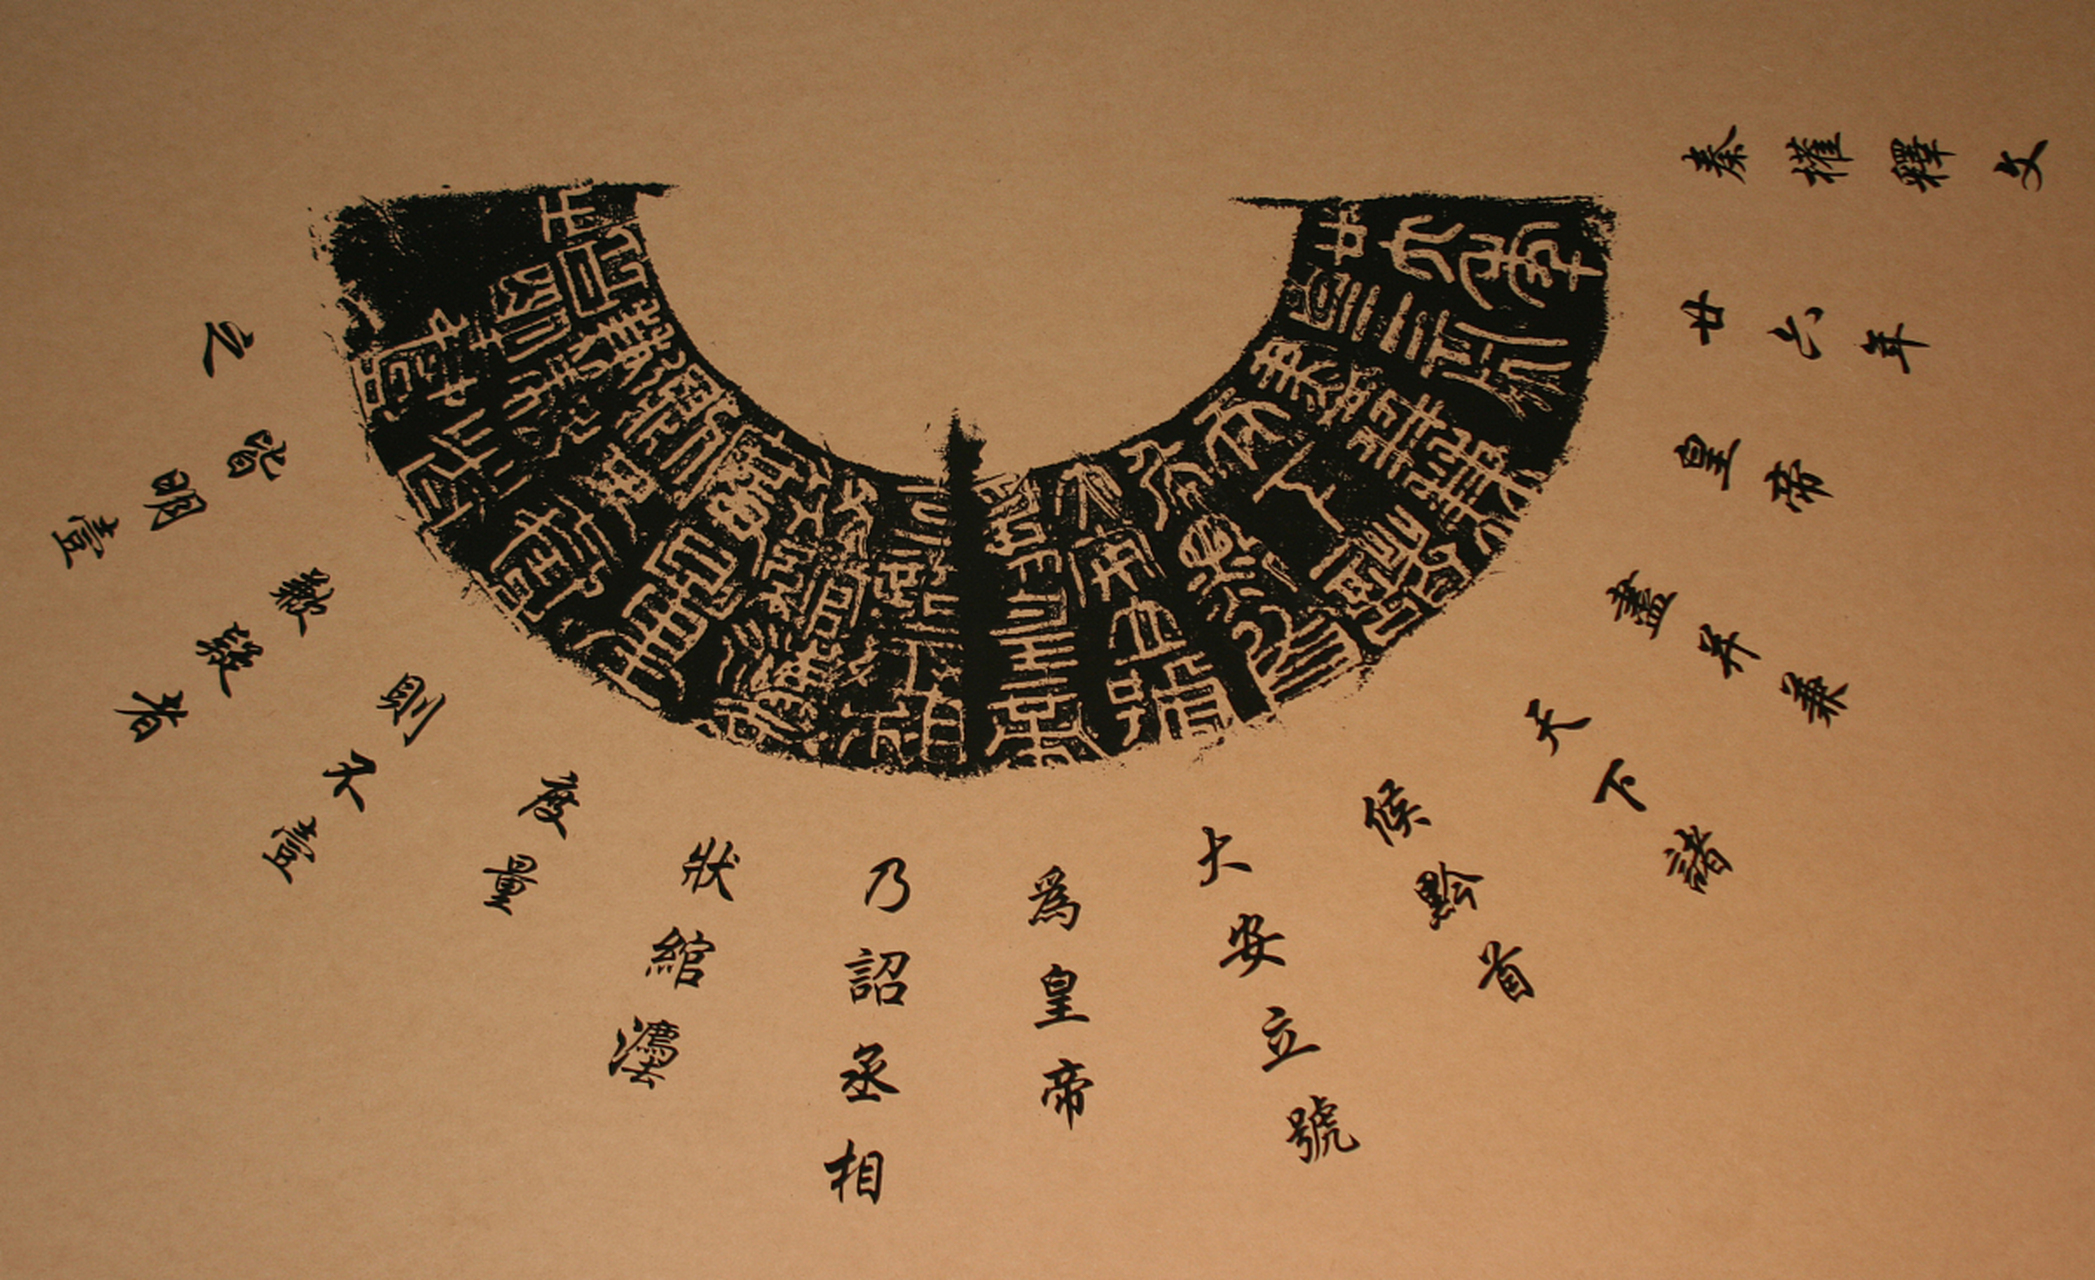 秦權釋文
廿六年
皇帝
盡并兼
天下諸
侯黔首
大安立號
爲皇帝
乃詔丞相
狀綰灋
度量
則不壹
歉疑者
皆明壹
之